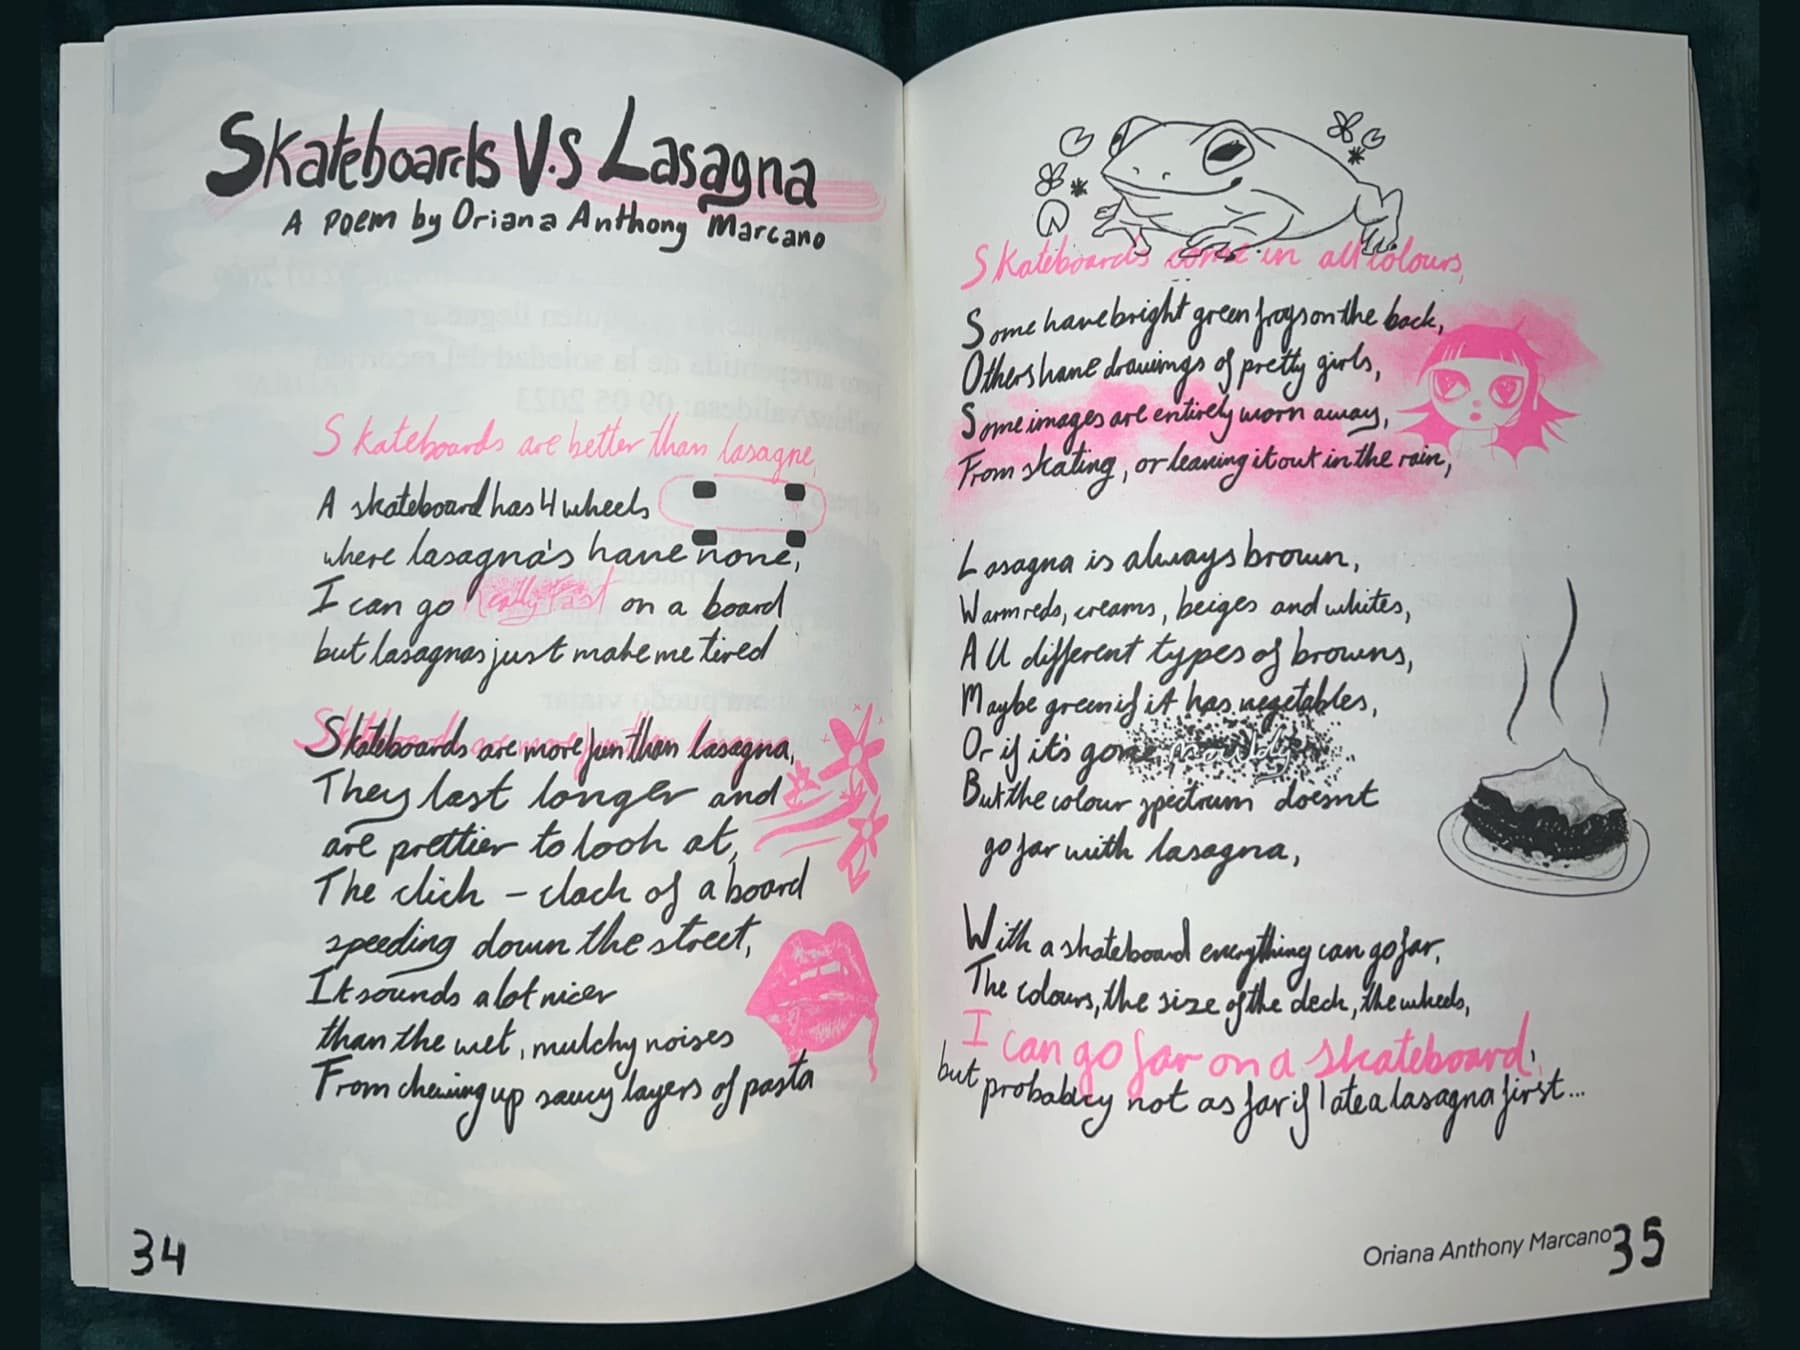 Skateboards V.S Lasagna
A poem by Oriana Anthony Marcano
Skateboards are better than lasagne,
A skateboard has 4 wheels
where lasagna's have none,
I can go really fast on a board
but lasagnas just make me tired
Skateboards are more fun than lasagna,
They last longer and
are prettier to look at,
The click - clack of a board
speeding down the street,
It sounds a lot nicer
than the wet, mulchy noises
From chewing up saucy layers of pasta
34
Skateboards come in all colours,
Some have bright green frogs on the back,
Others have drawings of pretty girls,
Some images are entirely worn away,
From skating, or leaving it out in the rain,
Lasagna is always brown,
Warm reds, creams, beiges and whites,
All different types of browns,
Maybe green if it has vegetables,
Or if it's gone mouldy
But the colour spectrum doesnt
go far with lasagna,
With a skateboard everything can go far,
The colours, the size of the deck, the wheels,
I can go far on a skateboard,
but probably not as far if I ate a lasagna first...
Oriana Anthony Marcano
35